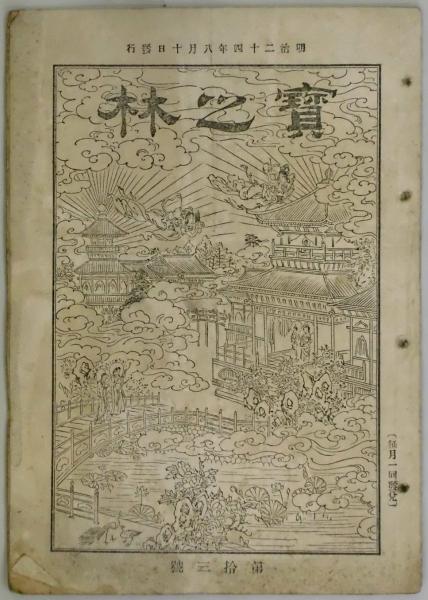 明治二十四年八月十日發行
寶之林
（每月一回發兌）
第拾三號